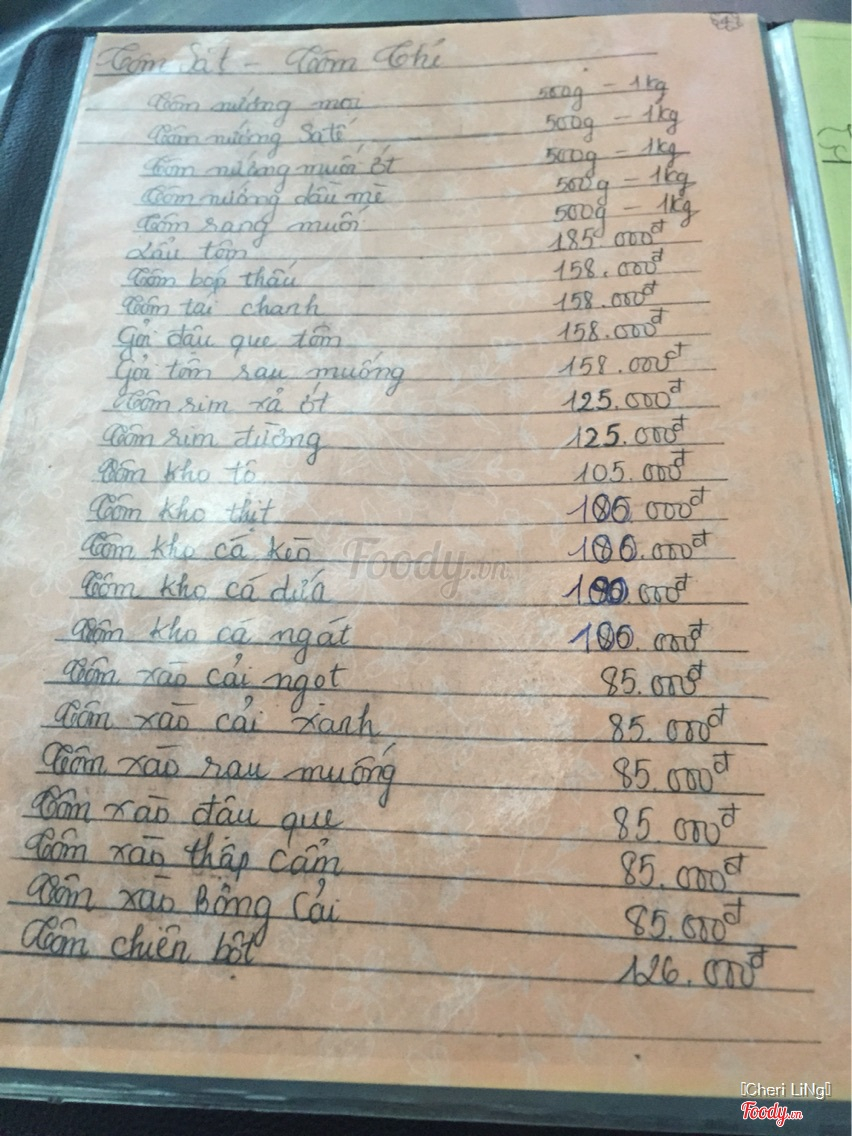 Tôm Sắt - Tôm Thẻ
Tôm nướng mọi 500g - 1kg
Tôm nướng Sa tế 500g - 1kg
Tôm nướng muối ớt 500g - 1kg
Tôm nướng dầu mè 500g - 1kg
Tôm rang muối 500g - 1kg
Lẩu tôm 185.000đ
Tôm bóp thấu 158.000đ
Tôm tái chanh 158.000đ
Gỏi đậu que tôm 158.000đ
Gỏi tôm rau muống 158.000đ
Tôm rim xả ớt 125.000đ
Tôm rim đường 125.000đ
Tôm kho tộ 105.000đ
Tôm kho thịt .000đ
Tôm kho cá kèo .000đ
Tôm kho cá dứa .000đ
Tôm kho cá ngát .000đ
Tôm xào cải ngọt 85.000đ
Tôm xào cải xanh 85.000đ
Tôm xào rau muống 85.000đ
Tôm xào đậu que 85.000đ
Tôm xào thập cẩm 85.000đ
Tôm xào Bông Cải 85.000đ
Tôm chiên bột 126.000đ
Foody.vn
Cheri LiNg
Foody.vn